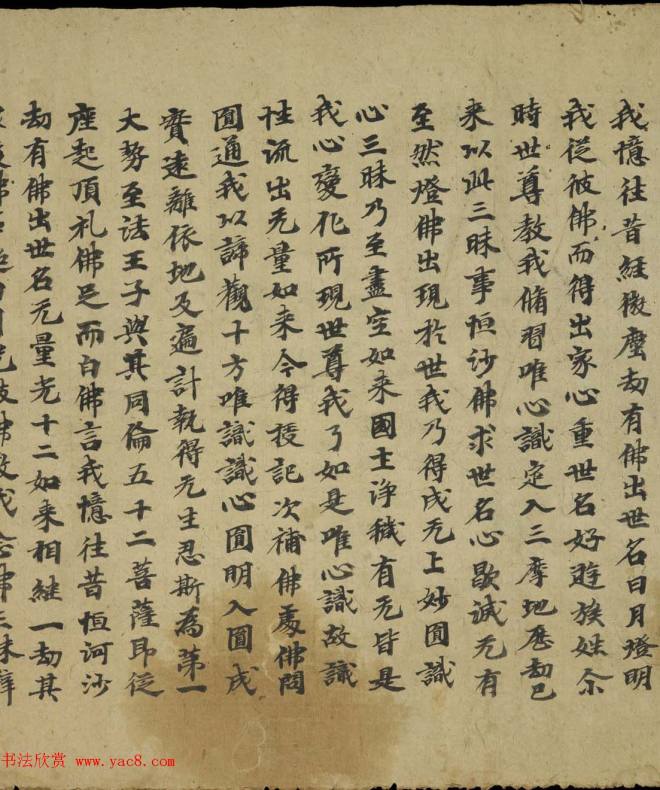 我憶往昔經微塵劫有佛出世名日月燈明
我從彼佛而得出家心重世名好遊族姓尒
時世尊教我脩習唯心識定入三摩地歷劫已
来以此三昧事恒沙佛求世名心歇滅无有
至然燈佛出現於世我乃得成无上妙圓識
心三昧乃至盡空如来國土淨穢有无皆是
我心變化所現世尊我了如是唯心識故識
性流出无量如来今得授記次補佛處佛問
圓通我以諦觀十方唯識識心圓明入圓成
實遠離依地及遍計執得无生忍斯為第一
大勢至法王子與其同倫五十二菩薩即從
座起頂礼佛足而白佛言我憶往昔恒河沙
劫有佛出世名无量光十二如来相継一劫其
後佛名超日月光彼佛教我念佛三昧譬
书法欣赏 www.yac8.com